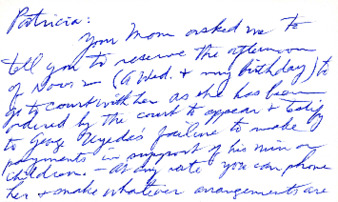 Patricia:
Your Mom asked me to
tell you to reserve the afternoon
of Nov. 2 (a Wed. & my birthday) to
go to court with her as she has been
ordered by the court to appear & testify
to George Uyeda's failure to make
payments in support of his minor
children. — At any rate you can phone
her & make whatever arrangements are